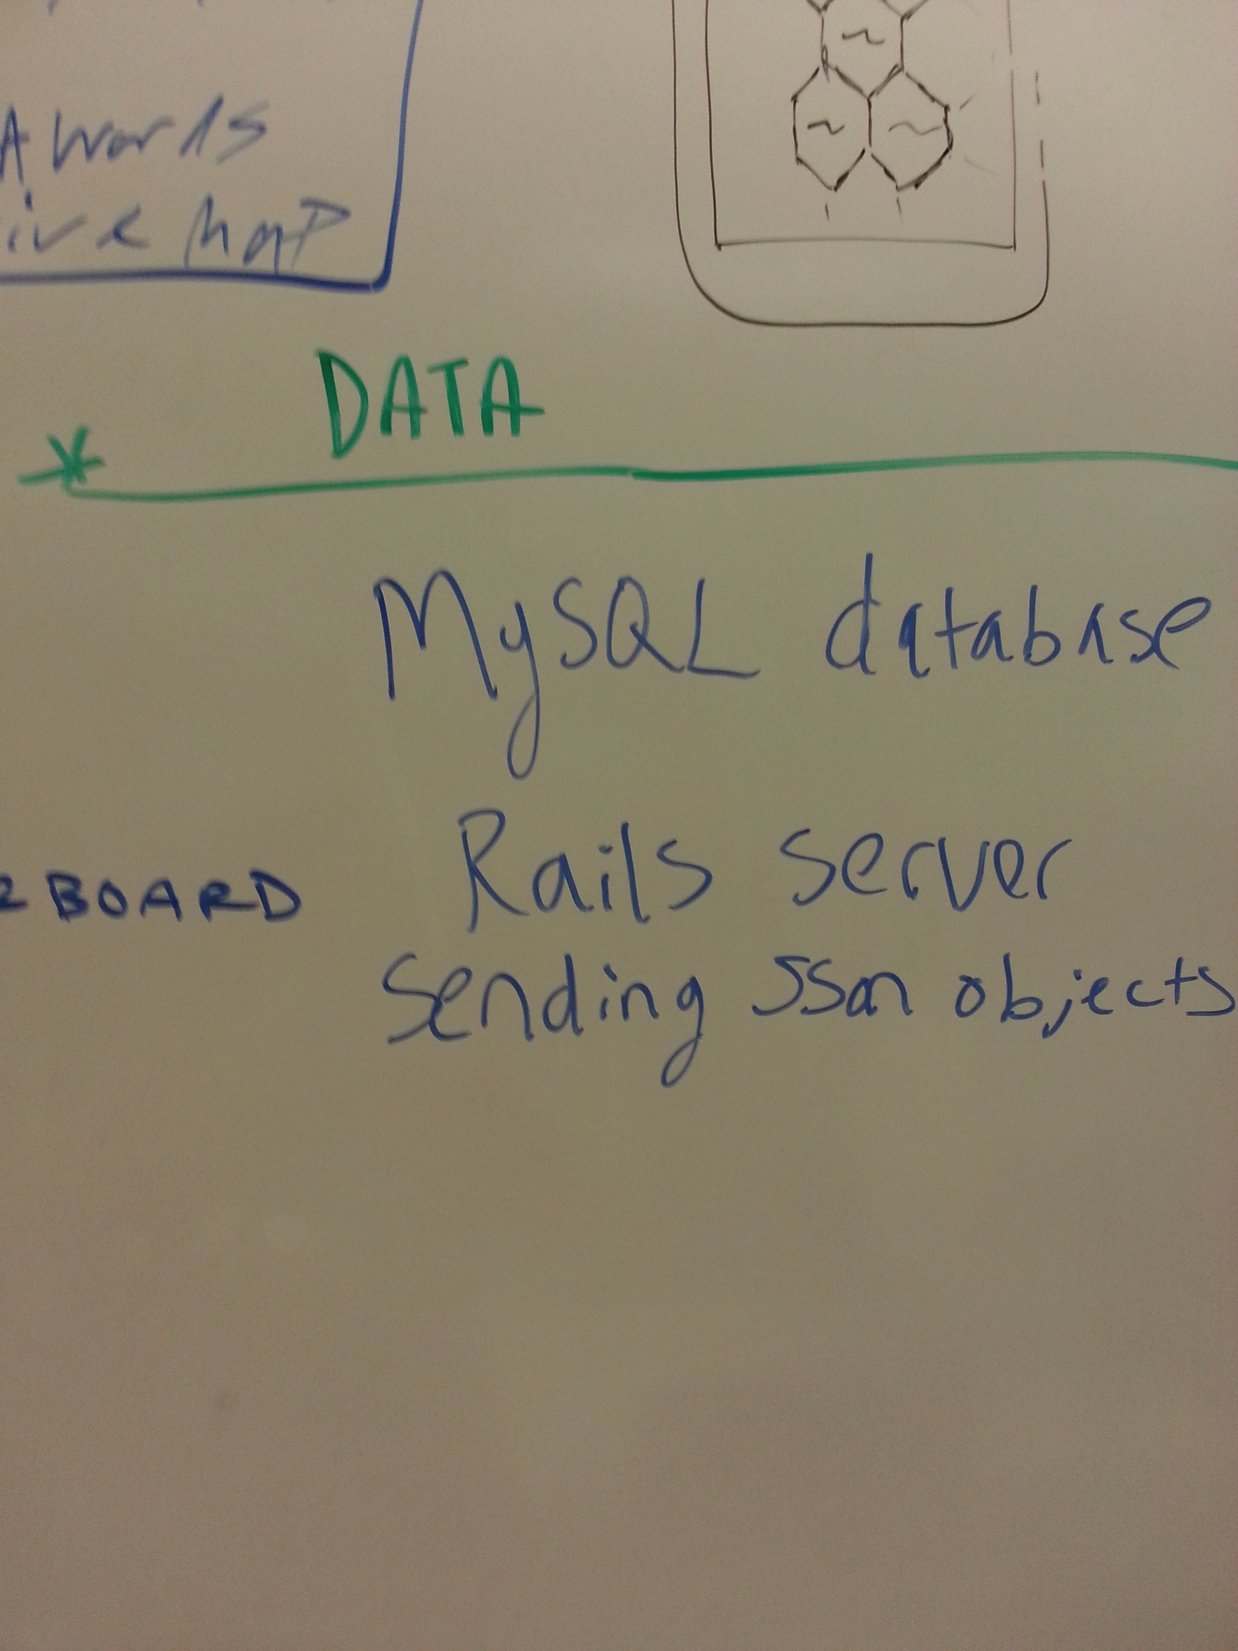 Awards
ive map
DATA
MySQL database
BOARD
Rails server
sending JSON objects